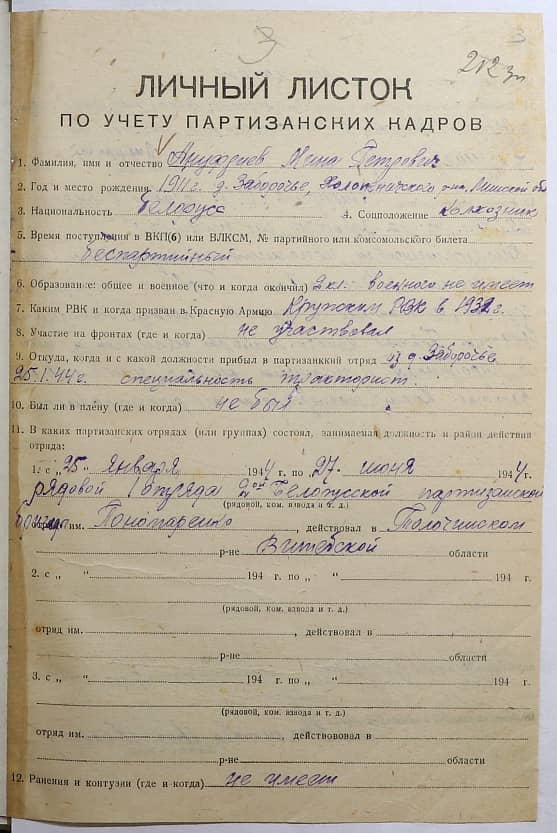 3
3
212 зп
ЛИЧНЫЙ ЛИСТОК
ПО УЧЕТУ ПАРТИЗАНСКИХ КАДРОВ
1. Фамилия, имя и отчество Ануфриев Мина Петрович
2. Год и место рождения 1911 г. д. Заборье, Холопеничского р-на, Минской обл
3. Национальность белорус 4. Соцположение Колхозник
5. Время поступления в ВКП(б) или ВЛКСМ, № партийного или комсомольского билета
беспартийный
6. Образование: общее и военное (что и когда окончил) 2 кл. военного не имеет
7. Каким РВК и когда призван в Красную Армию Крупским РВК в 1932 г.
8. Участие на фронтах (где и когда) не участвовал
9. Откуда, когда и с какой должности прибыл в партизанккий отряд из д. Заборье
25.1.44 г. специальность тракторист.
10. Был ли в плену (где и когда) не был
11. В каких партизанских отрядах (или группах) состоял, занимаемая должность и район действия
отряда:
1. с „ 25 “ января 1944 г. по „ 27 “ июня 1944 г.
рядовой 1 отряда 2ой Белорусской партизанской
(рядовой, ком. взвода и т. д.)
бригады отряд им. Пономаренко, действовал в Толочинском
р-не Витебской области
2. с „ “ 194 г. по „ “ 194 г.
(рядовой, ком. взвода и т. д.)
отряд им. , действовал в
р-не области
3. с „ “ 194 г. по „ “ 194 г.
(рядовой, ком. взвода и т. д.)
отряд им. , действововал в
р-не области
12. Ранения и контузии (где и когда) не имеет